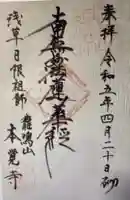 奉拝 令和五年四月二十日
南無妙法蓮華経
浅草日限祖師
龍鳴山
本覚寺